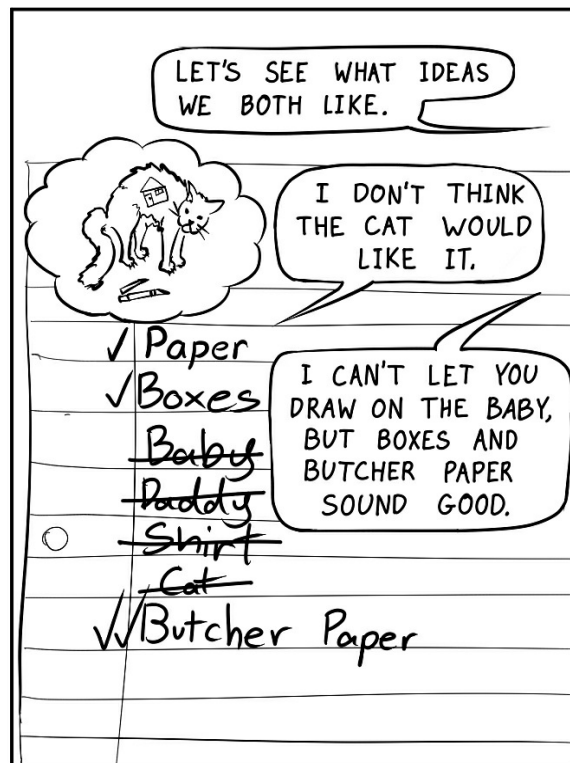 LET'S SEE WHAT IDEAS
WE BOTH LIKE.
I DON'T THINK
THE CAT WOULD
LIKE IT.
I CAN'T LET YOU
DRAW ON THE BABY,
BUT BOXES AND
BUTCHER PAPER
SOUND GOOD.
Paper
Boxes
Baby
Daddy
Shirt
Cat
Butcher Paper